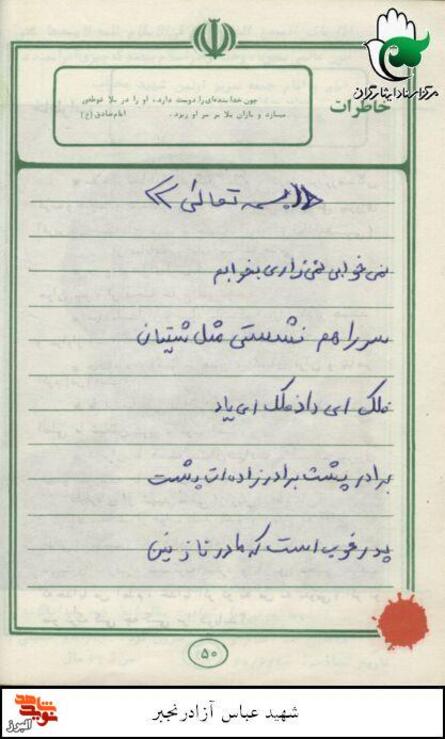 مرکز اسناد ایثارگران
خاطرات
چون خدا بنده‌ای را دوست دارد، او را در بلا غوطه‌ور
میسازد و باران بلا بر سر او ریزد. امام صادق (ع)
«بسمه تعالی»
نمی خوابی نمی زاری بخوابم
سر راهم نشستی مثل شیتان
فلک ای داد فلک ای یاد
برادر پشت برادر زاده ات پشت
پدر خوب است که مادر نازنین
۵۰
شاهد
نوید
البرز
شهید عباس آزاد رنجبر